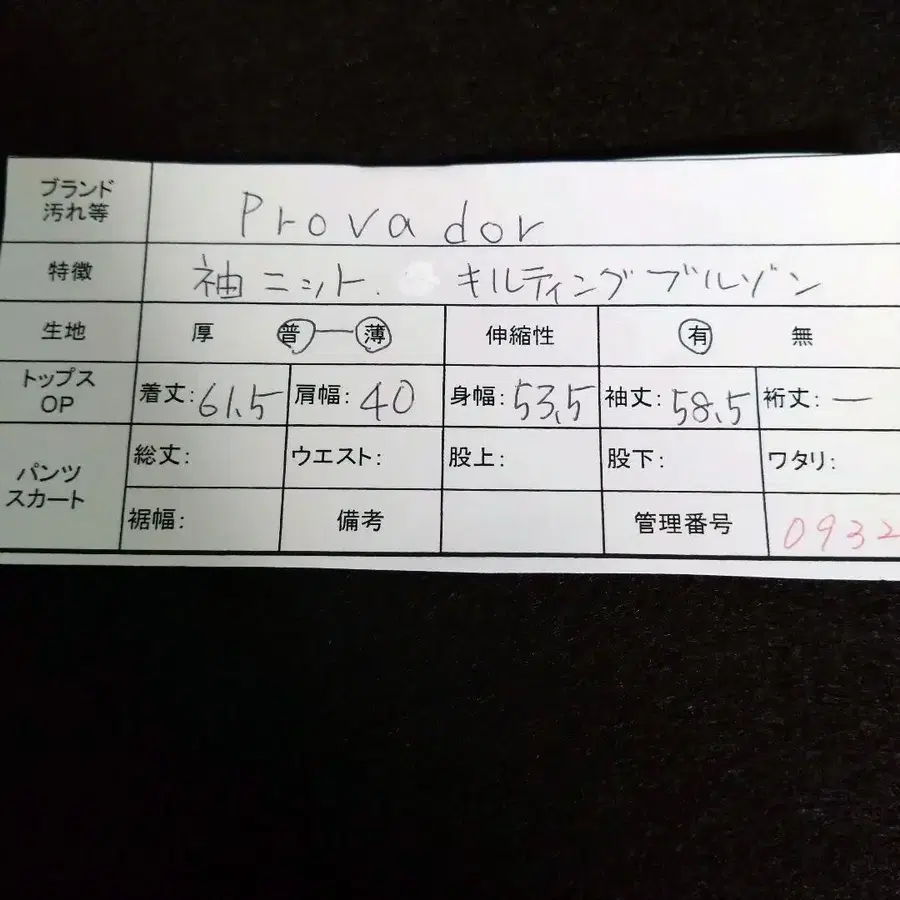 ブランド
汚れ等 Provador
特徴 袖ニット. キルティングブルゾン
生地 厚 普 薄 伸縮性 有 無
トップス
OP 着丈:61.5 肩幅:40 身幅:53.5 袖丈:58.5 裄丈:ー
パンツ
スカート 総丈: ウエスト: 股上: 股下: ワタリ:
裾幅: 備考 管理番号 0932